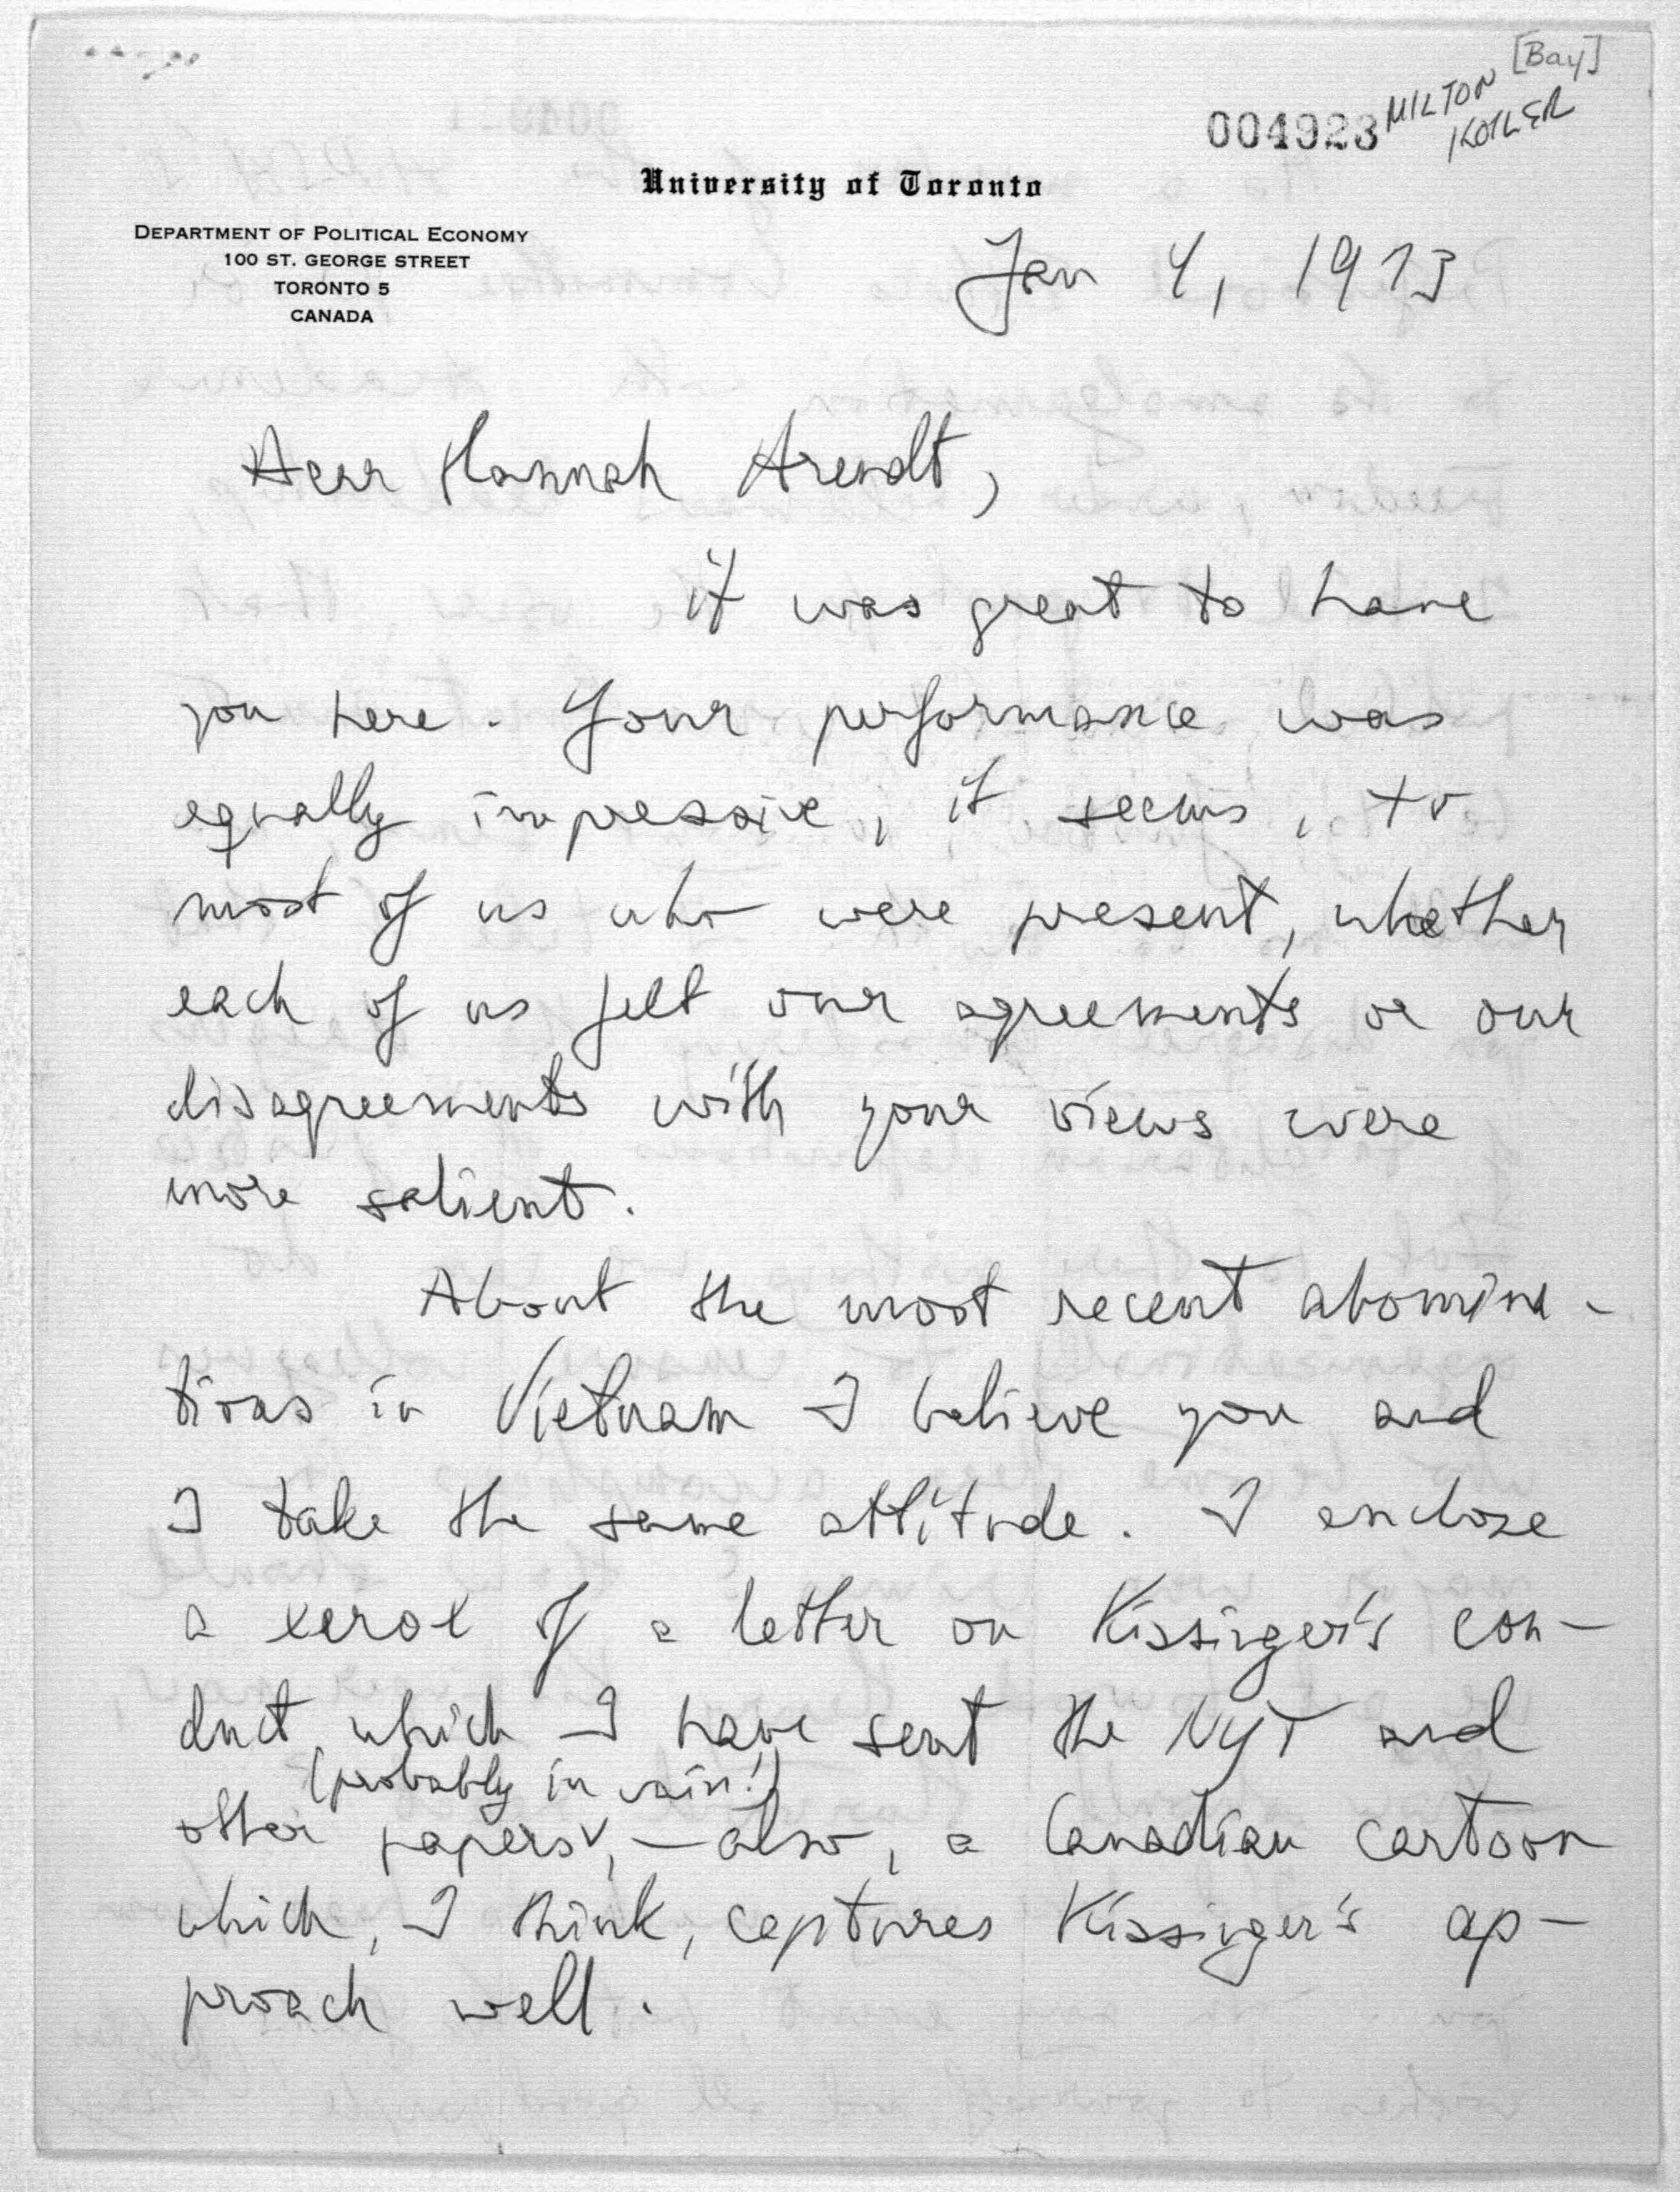 [Bay]
004923 MILTON
KOTLER
University of Toronto
DEPARTMENT OF POLITICAL ECONOMY
100 ST. GEORGE STREET
TORONTO 5
CANADA
Jan 4, 1973
Dear Hannah Arendt,
it was great to have
you here. Your performance was
equally impressive, it seems, to
most of us who were present, whether
each of us felt our agreements or our
disagreements with your views were
more salient.
About the most recent abomina-
tions in Vietnam I believe you and
I take the same attitude. I enclose
a xerox of a letter on Kissinger's con-
duct which I have sent the NYT and
(probably in vain!)
other papers, — also, a Canadian cartoon
which, I think, captures Kissinger's ap-
proach well.